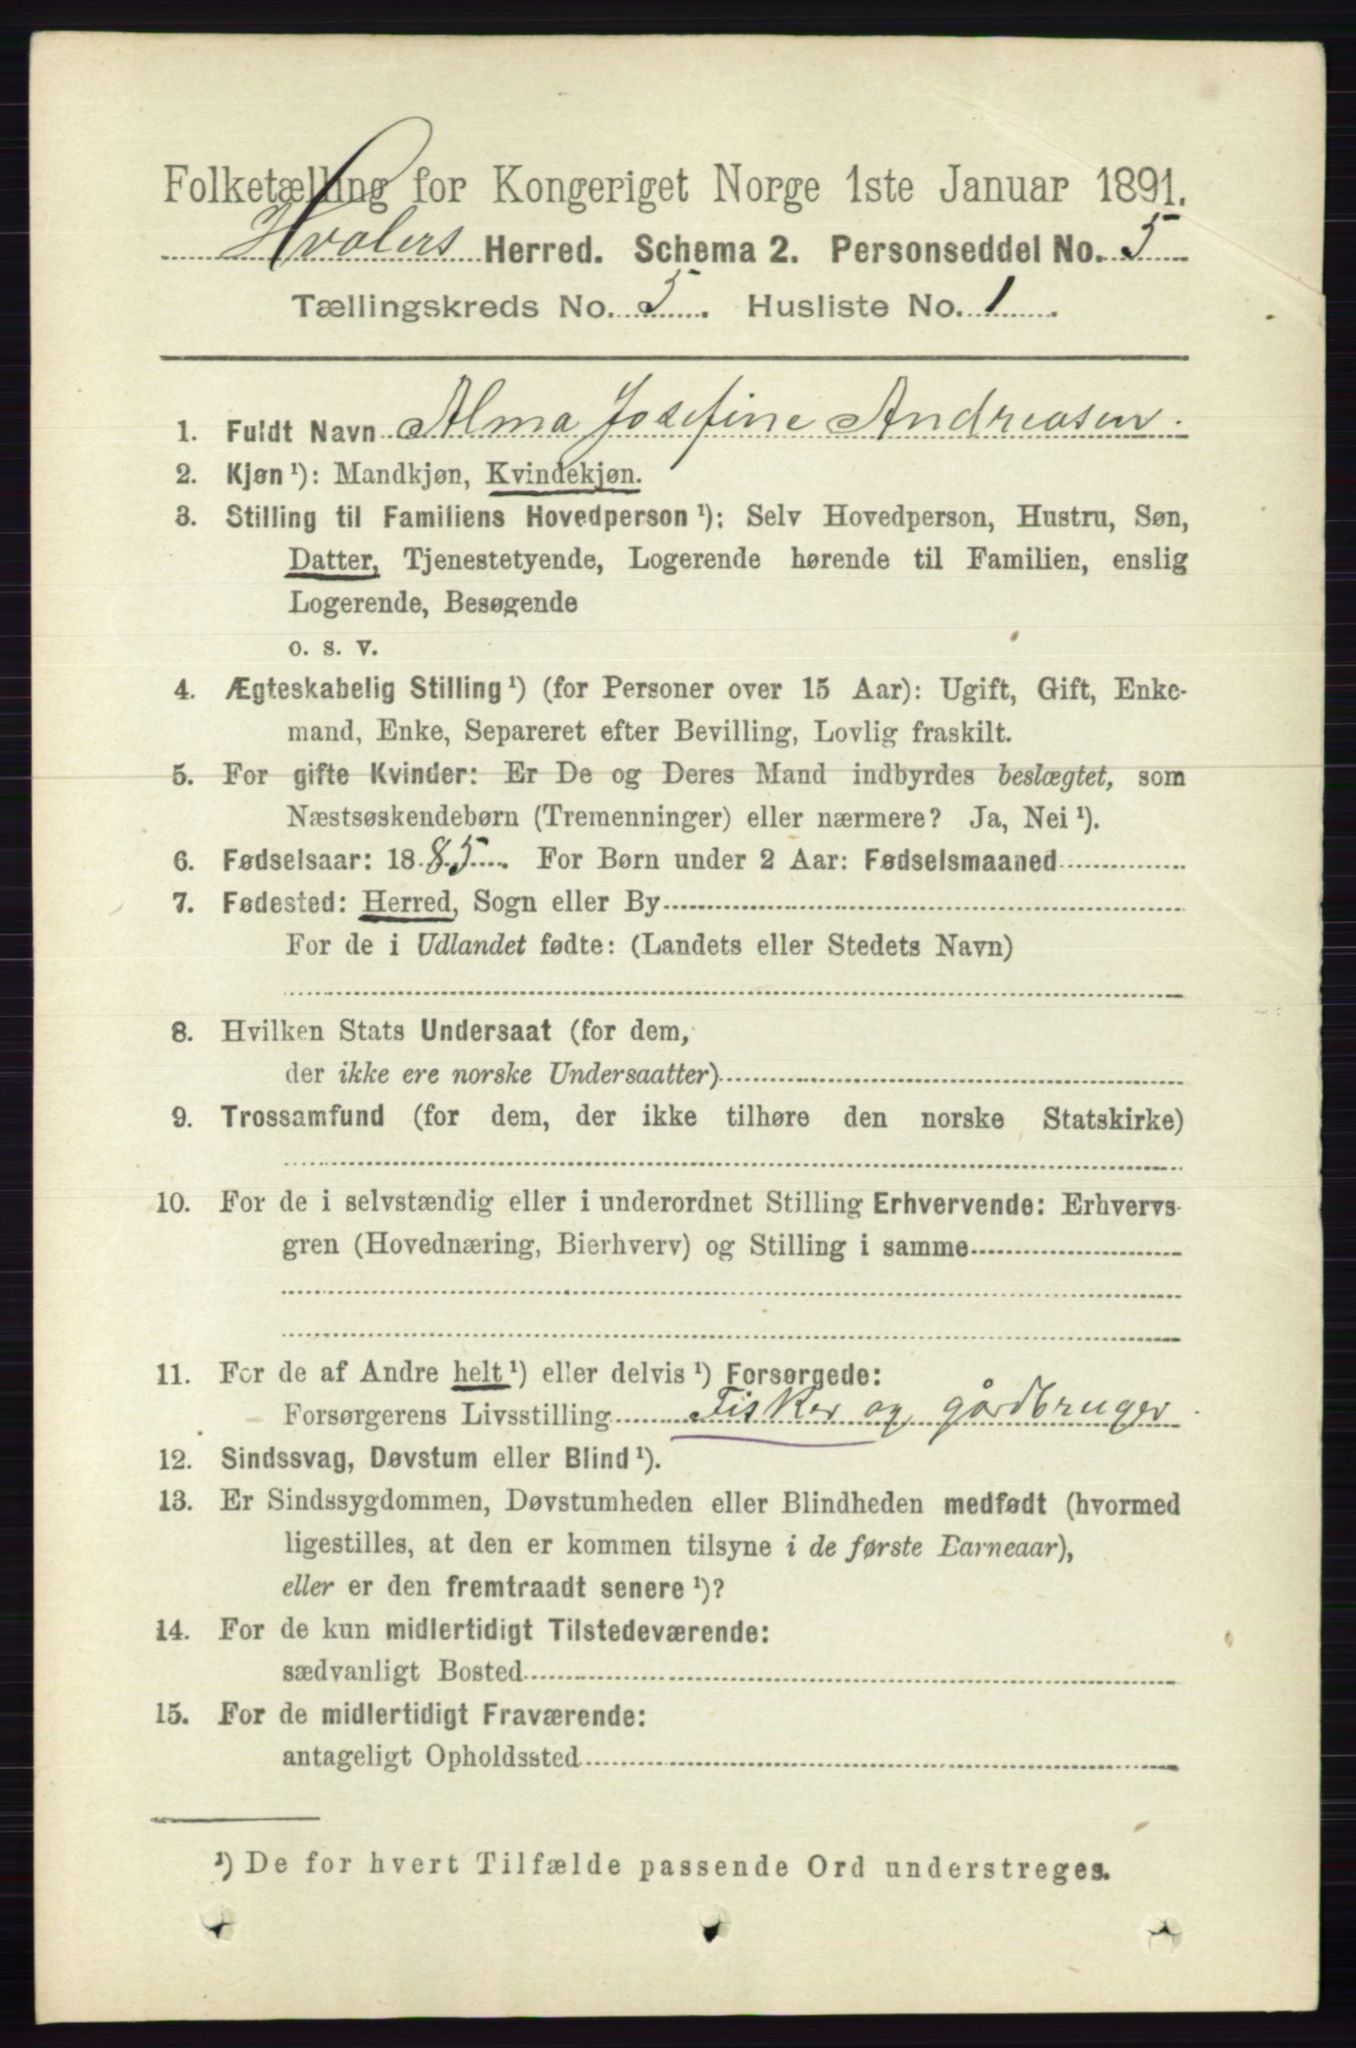 Folketælling for Kongeriget Norge 1ste Januar 1891.
Hvalers Herred. Schema 2. Personseddel No. 5
Tællingskreds No. 5. Husliste No. 1.
1. Fuldt Navn Alma Josefine Andreasen.
2. Kjøn ¹): Mandkjøn, Kvindekjøn.
3. Stilling til Familiens Hovedperson ¹): Selv Hovedperson, Hustru, Søn,
Datter, Tjenestetyende, Logerende hørende til Familien, enslig
Logerende, Besøgende
o. s. v.
4. Ægteskabelig Stilling ¹) (for Personer over 15 Aar): Ugift, Gift, Enke-
mand, Enke, Separeret efter Bevilling, Lovlig fraskilt.
5. For gifte Kvinder: Er De og Deres Mand indbyrdes beslægtet, som
Næstsøskendebørn (Tremenninger) eller nærmere? Ja, Nei ¹).
6. Fødselsaar: 1885. For Børn under 2 Aar: Fødselsmaaned
7. Fødested: Herred, Sogn eller By
For de i Udlandet fødte: (Landets eller Stedets Navn)
8. Hvilken Stats Undersaat (for dem,
der ikke ere norske Undersaatter)
9. Trossamfund (for dem, der ikke tilhøre den norske Statskirke)
10. For de i selvstændig eller i underordnet Stilling Erhvervende: Erhvervs-
gren (Hovednæring, Bierhverv) og Stilling i samme
11. For de af Andre helt ¹) eller delvis ¹) Forsørgede:
Forsørgerens Livsstilling Fisker og gårdbruger.
12. Sindssvag, Døvstum eller Blind ¹).
13. Er Sindssygdommen, Døvstumheden eller Blindheden medfødt (hvormed
ligestilles, at den er kommen tilsyne i de første Barneaar),
eller er den fremtraadt senere ¹)?
14. For de kun midlertidigt Tilstedeværende:
sædvanligt Bosted
15. For de midlertidigt Fraværende:
antageligt Opholdssted
¹) De for hvert Tilfælde passende Ord understreges.